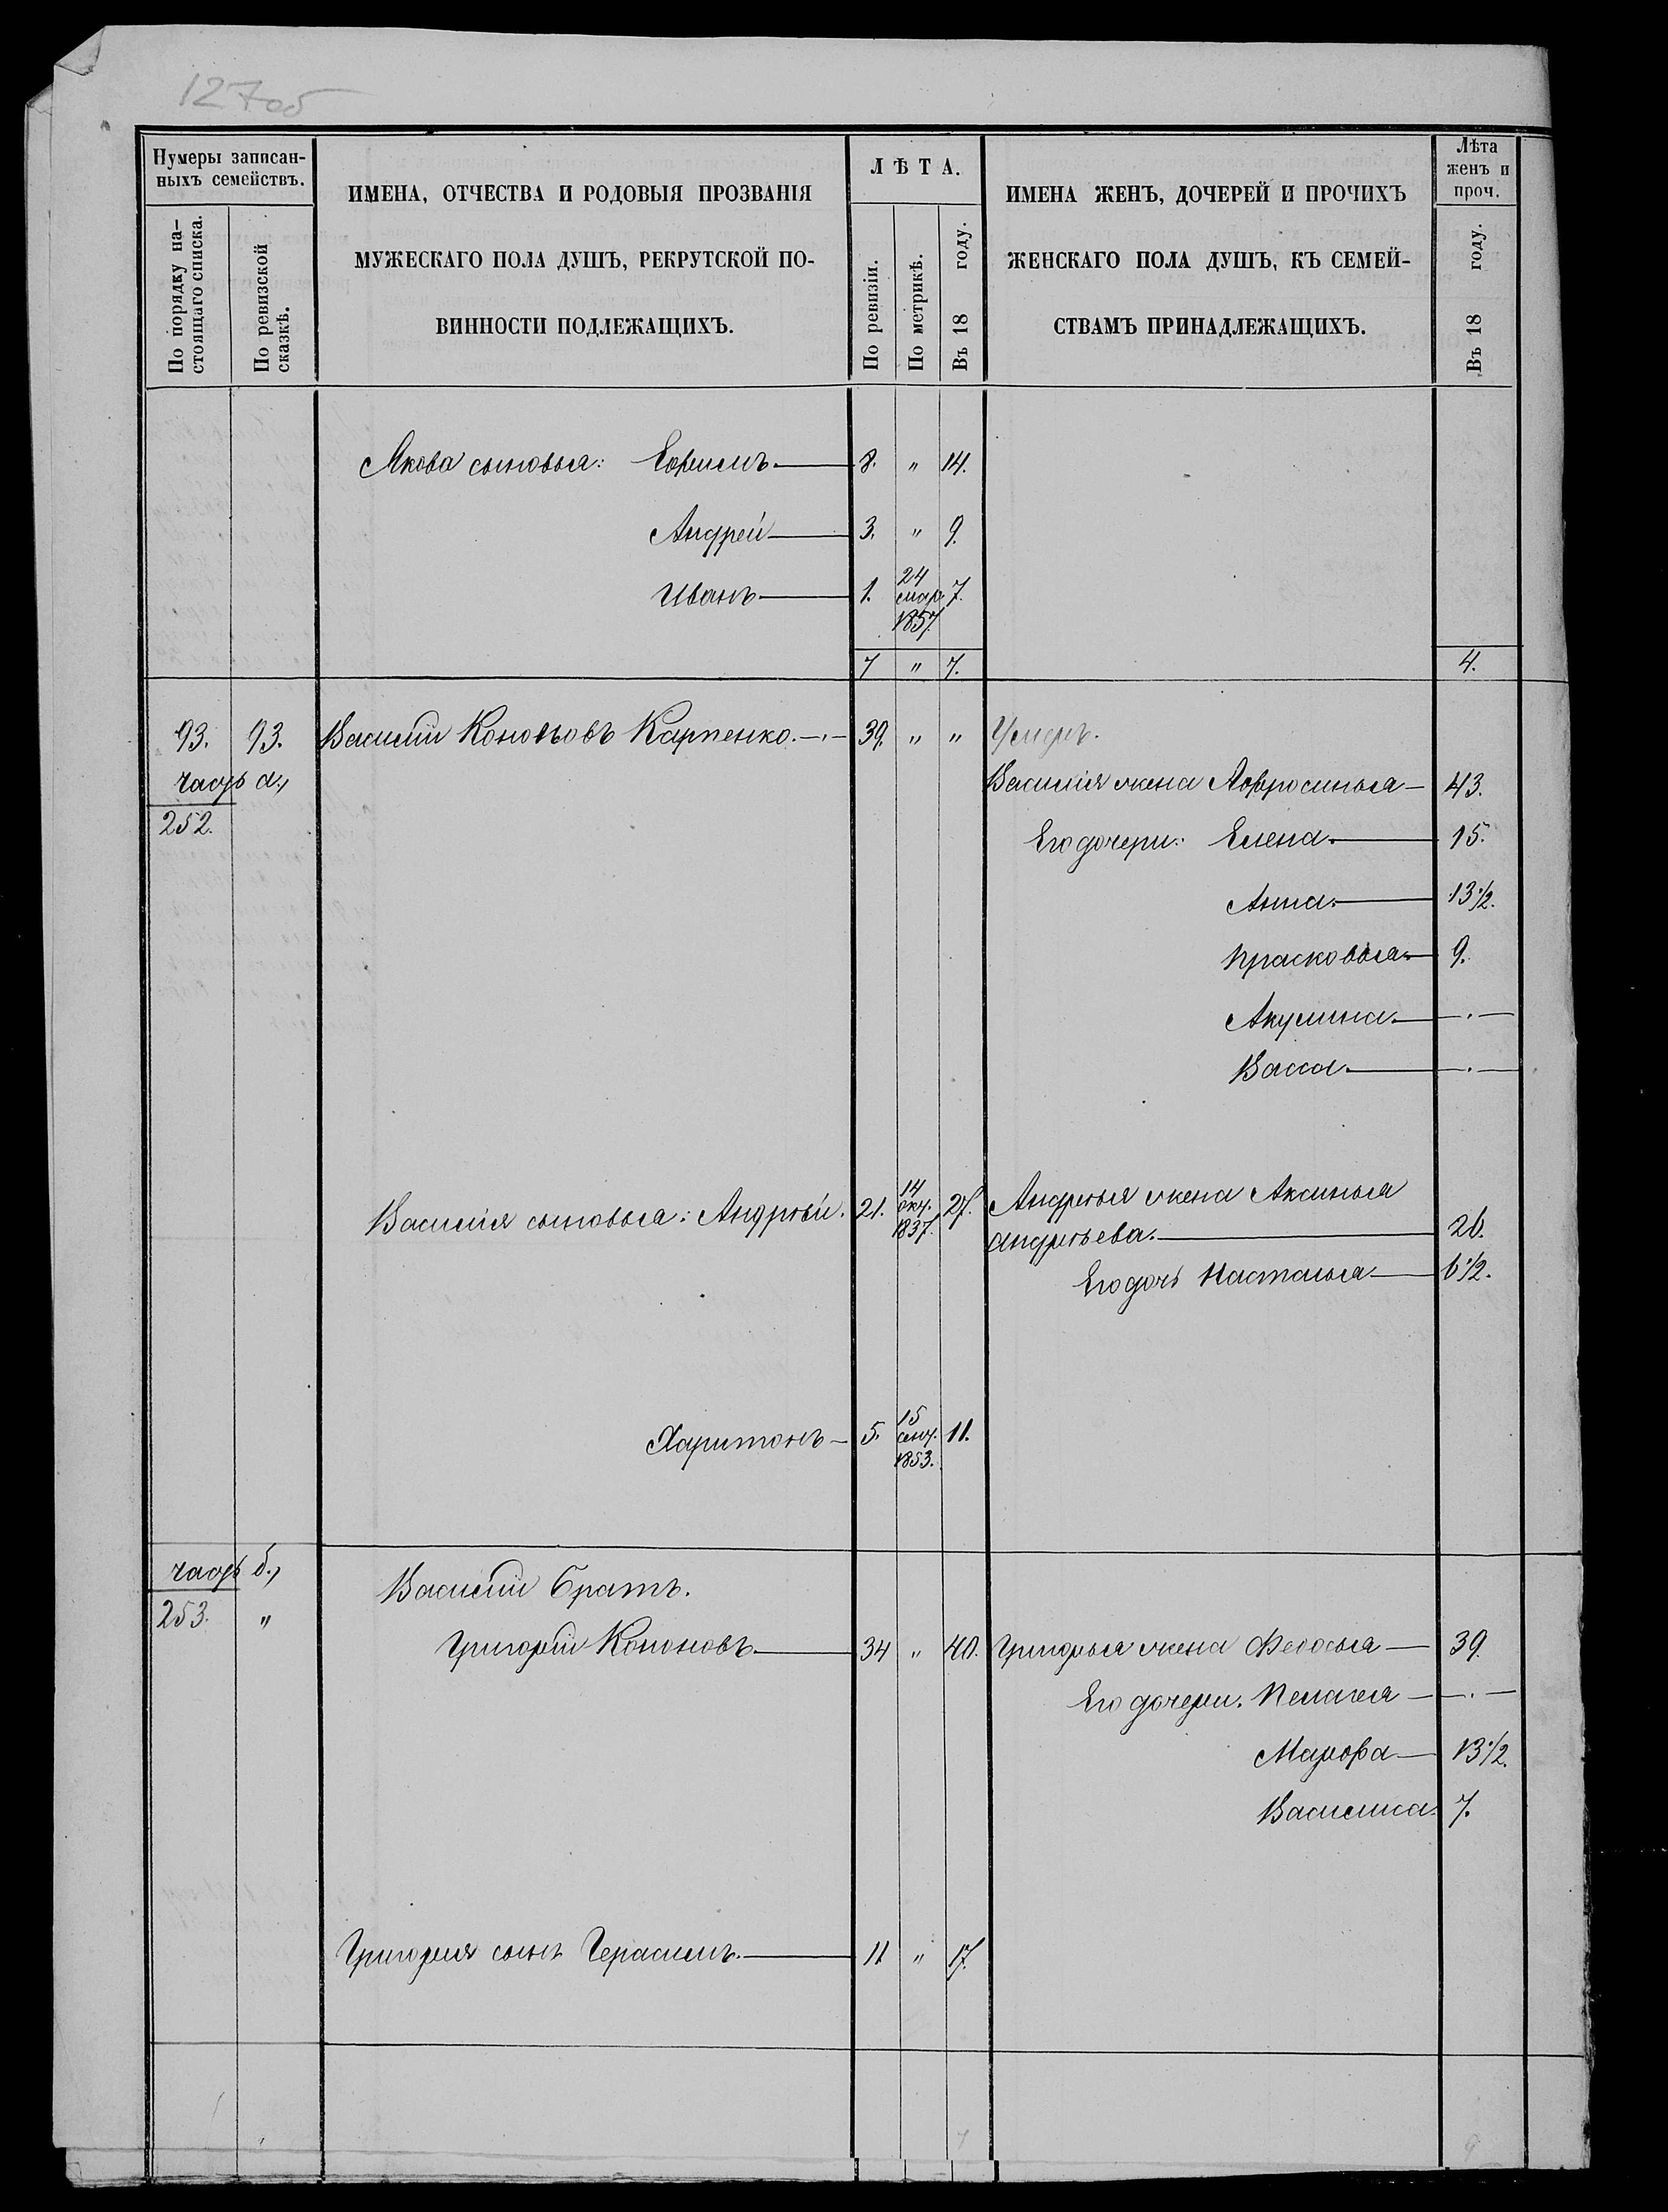 127об
Нумеры записан-
ныхъ семействъ.
По порядку на-
стоящаго списка.
По ревизской
сказкѣ.
ИМЕНА, ОТЧЕСТВА И РОДОВЫЯ ПРОЗВАНІЯ
МУЖЕСКАГО ПОЛА ДУШЪ, РЕКРУТСКОЙ ПО-
ВИННОСТИ ПОДЛЕЖАЩИХЪ.
ЛѢТА.
По ревизіи.
По метрикѣ.
Въ 18 году.
ИМЕНА ЖЕНЪ, ДОЧЕРЕЙ И ПРОЧИХЪ
ЖЕНСКАГО ПОЛА ДУШЪ, КЪ СЕМЕЙ-
СТВАМЪ ПРИНАДЛЕЖАЩИХЪ.
Лѣта
женъ и
проч.
Въ 18 году.
Якова сыновья: Ефимъ 8. " 14.
Андрей 3. " 9.
Иванъ 1. 24 мар. 1857. 7.
7 " 7. 4.
93. 93. Василій Кононовъ Карпенко. 39. " " Умеръ.
часть а.,
252.
Василія жена Афросинья 43.
Его дочери: Елена. 15.
Анна. 13½.
Прасковья 9.
Акулина.
Васса.
Василія сыновья: Андрѣй. 21. 14 окт. 1837. 27. Андрѣя жена Аксинья
Андрѣева. 26.
Его дочь Настасья 6½.
Харитонъ 5. 15 сент. 1853. 11.
часть б.,
253. "
Василій братъ.
Григорій Кононовъ. 34 " 40. Григорья жена Феодосья 39.
Его дочери. Пелагея
Марфа 13½.
Василиса. 7.
Григорія сынъ Герасимъ. 11 " 17.
7 9